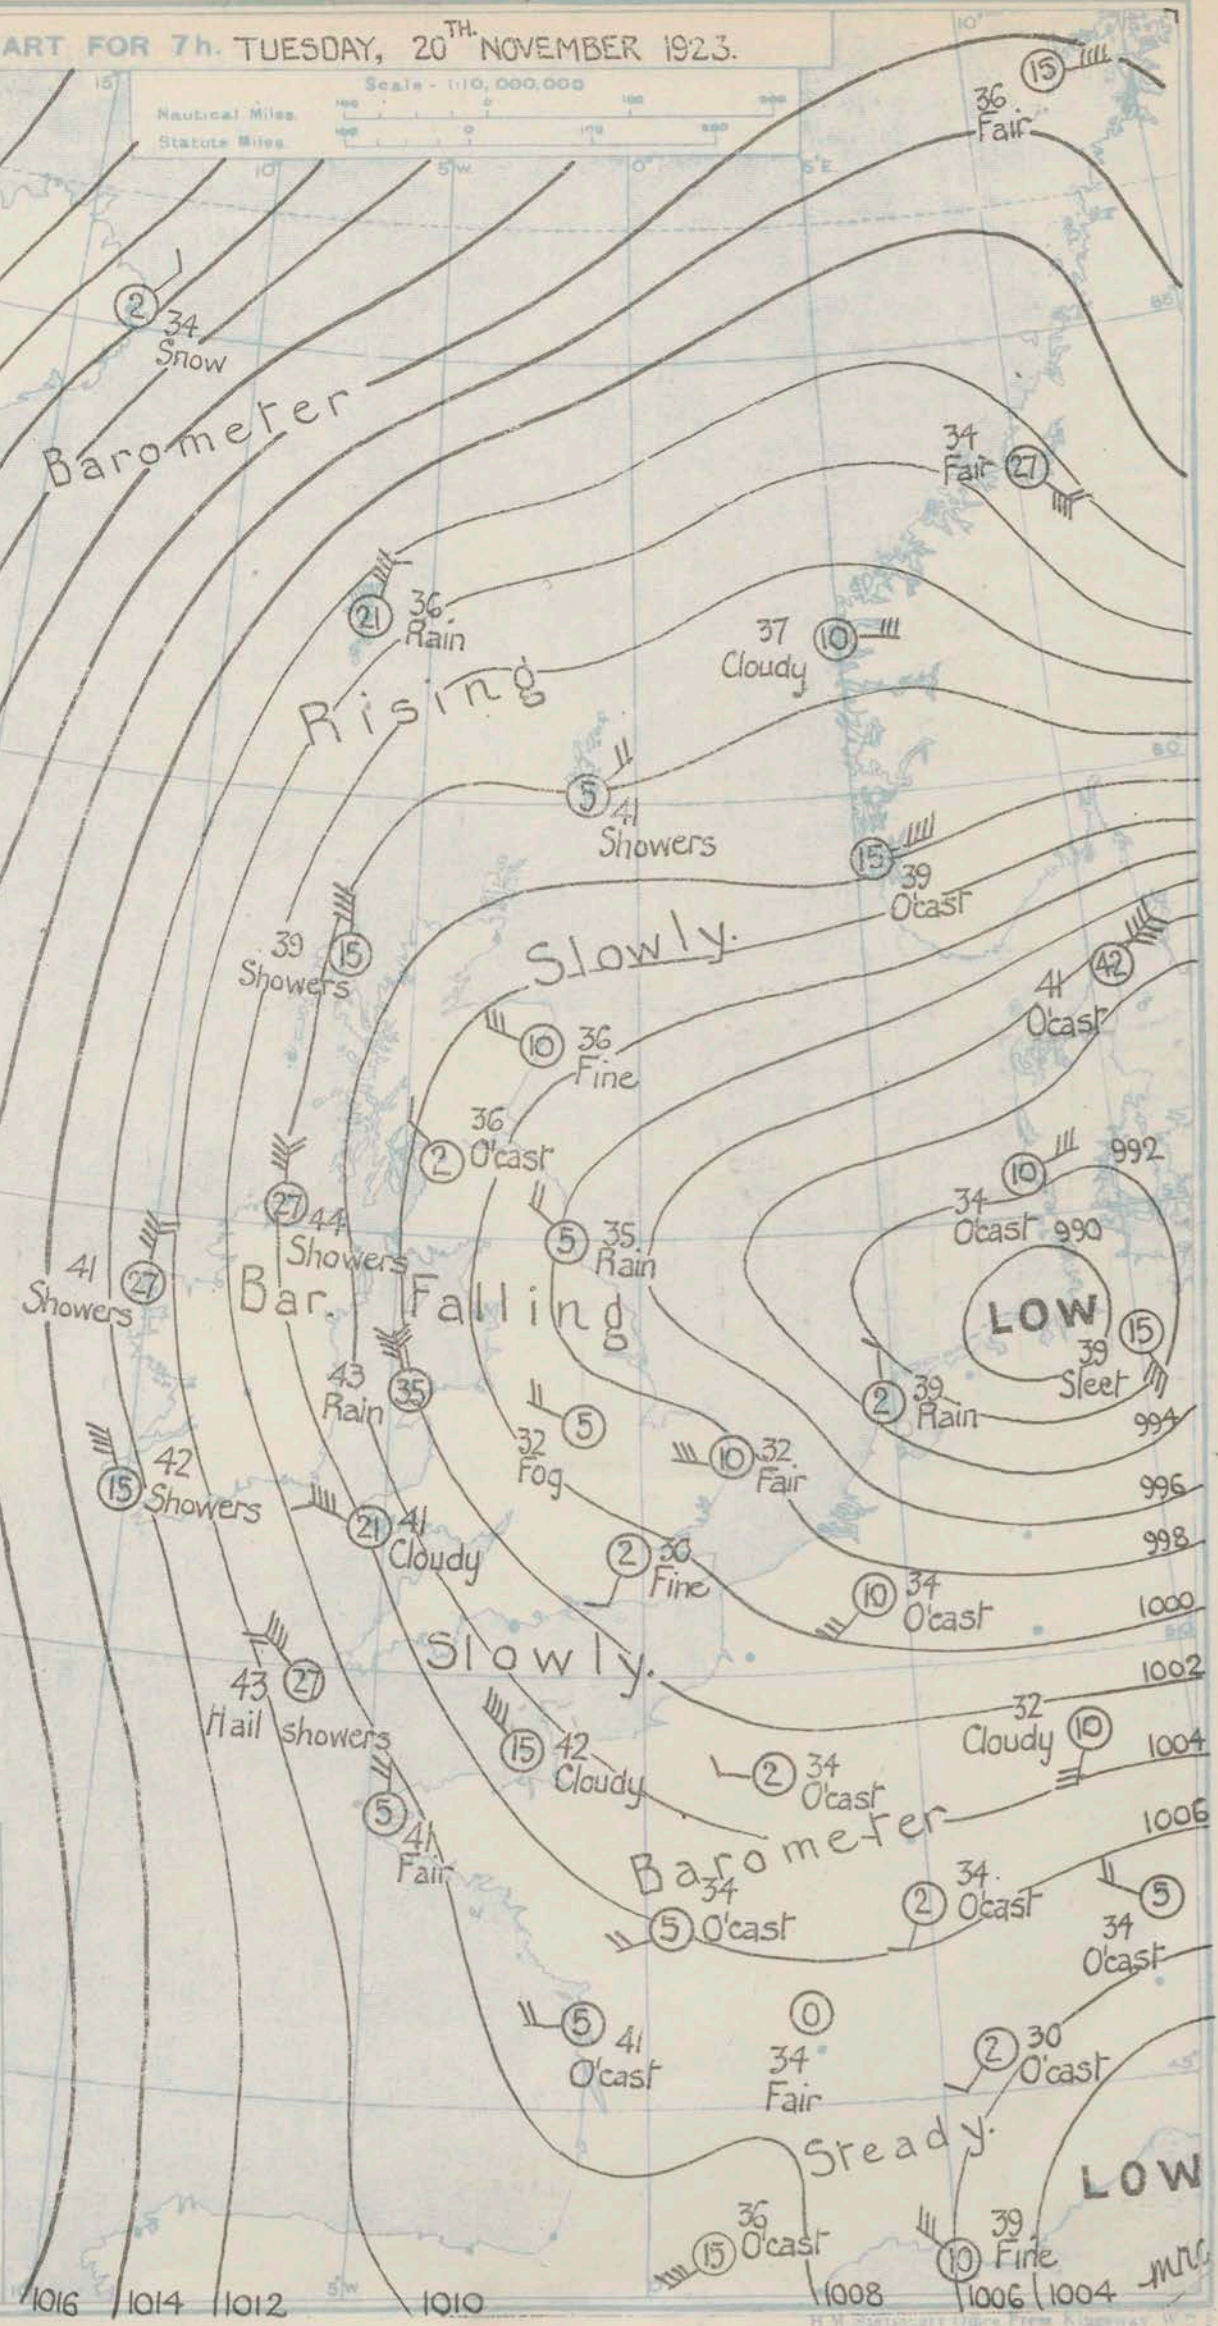 ART FOR 7h. TUESDAY, 20TH. NOVEMBER 1923.
Scale - 1:10,000,000
Nautical Miles
Statute Miles
10°
15°
10°
5°W.
0°
5°E.
15
36
Fair
2
34
Snow
65
Barometer
34
Fair
27
21
36
Rain
37
Cloudy
10
Rising
60
5
41
Showers
15
39
O'cast
39
Showers
15
Slowly.
42
41
O'cast
10
36
Fine
36
2
O'cast
992
10
34
O'cast
990
27
44
Showers
5
35
Rain
41
Showers
27
Bar. Falling
LOW
15
39
Sleet
43
Rain
35
2
39
Rain
994
5
32
Fog
10
32
Fair
42
15
Showers
996
21
41
Cloudy
998
2
30
Fine
10
34
O'cast
1000
Slowly.
1002
43
27
Hail showers
32
Cloudy
10
1004
15
42
Cloudy
2
34
O'cast
1006
5
41
Fair
Barometer
34
5
O'cast
2
34.
O'cast
5
34
O'cast
5
41
O'cast
0
34
Fair
2
30
O'cast
45°
Steady.
LOW
36
15
O'cast
39
10
Fine
5°W
1016
1014
1012
1010
1008
1006
1004